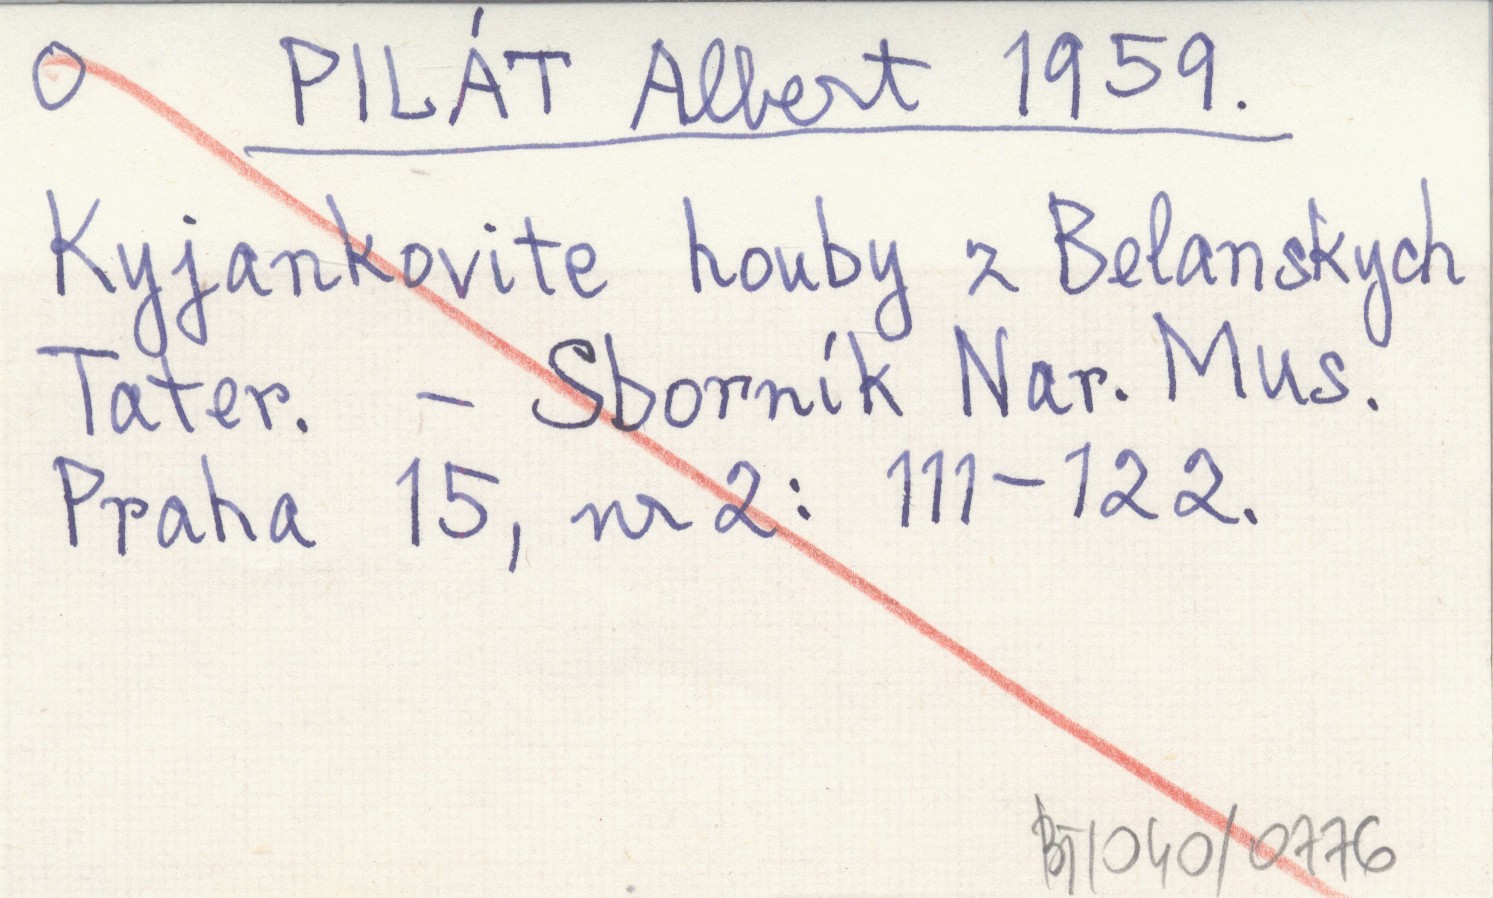 O PILÁT Albert 1959.
Kyjankovite houby z Belanskych
Tater. – Sborník Nar. Mus.
Praha 15, nr 2: 111–122.
BJ/040/0776